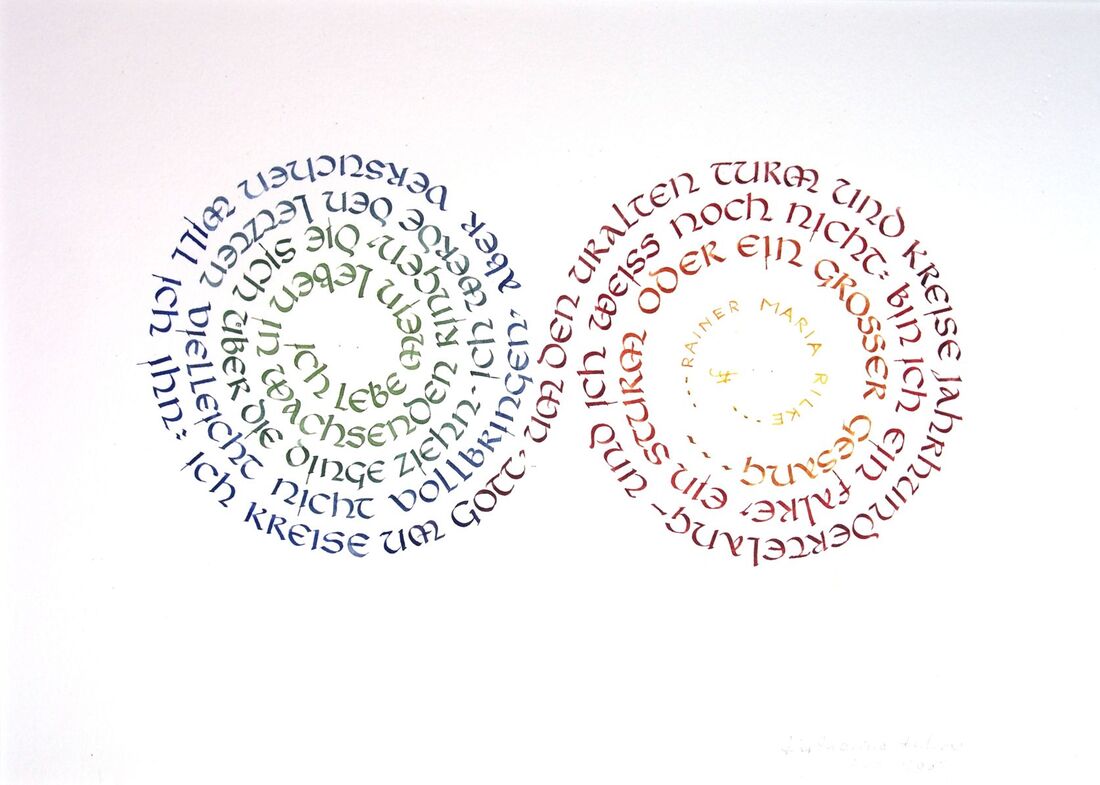 ICH LEBE MEIN LEBEN IN WACHSENDEN RINGEN, DIE SICH ÜBER DIE DINGE ZIEHN. ICH WERDE DEN LETZTEN VIELLEICHT NICHT VOLLBRINGEN, ABER VERSUCHEN WILL ICH IHN: ICH KREISE UM GOTT, UM DEN URALTEN TURM UND KREISE JAHRHUNDERTELANG – UND ICH WEISS NOCH NICHT: BIN ICH EIN FALKE, EIN STURM ODER EIN GROSSER GESANG.
RAINER MARIA RILKE